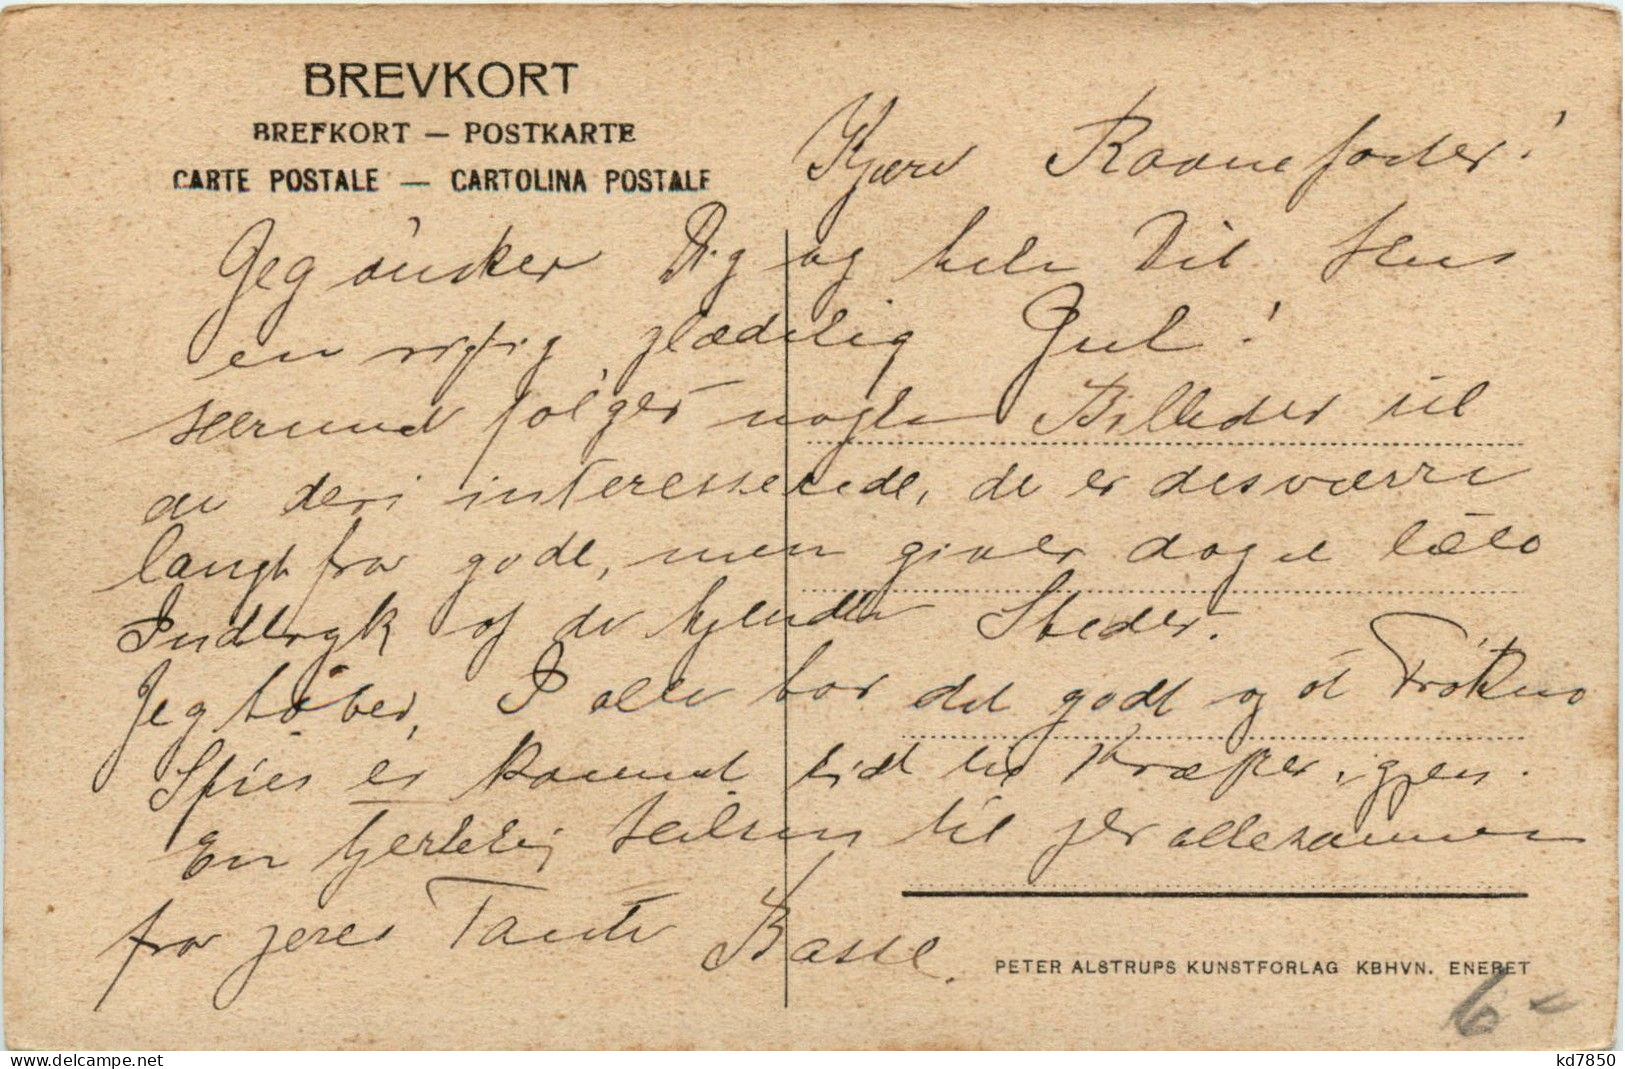 BREVKORT
BREFKORT — POSTKARTE
CARTE POSTALE — CARTOLINA POSTALE
Kjære !
Jeg önsker Dig og hele Dit Hus
en rigtig glædelig Jul!
Herved följer nogle Billeder til
de deri interesserede, de er desværre
langt fra gode, men giver dog et
Indtryk af de kjendte Steder.
Jeg håber, I alle har det godt og at Fröken
Spies er kommet til Kræfter igjen.
En hjertelig Hilsen til jer allesammen
fra jeres Tante Basse.
PETER ALSTRUPS KUNSTFORLAG KBHVN. ENERET
6-
kd7850